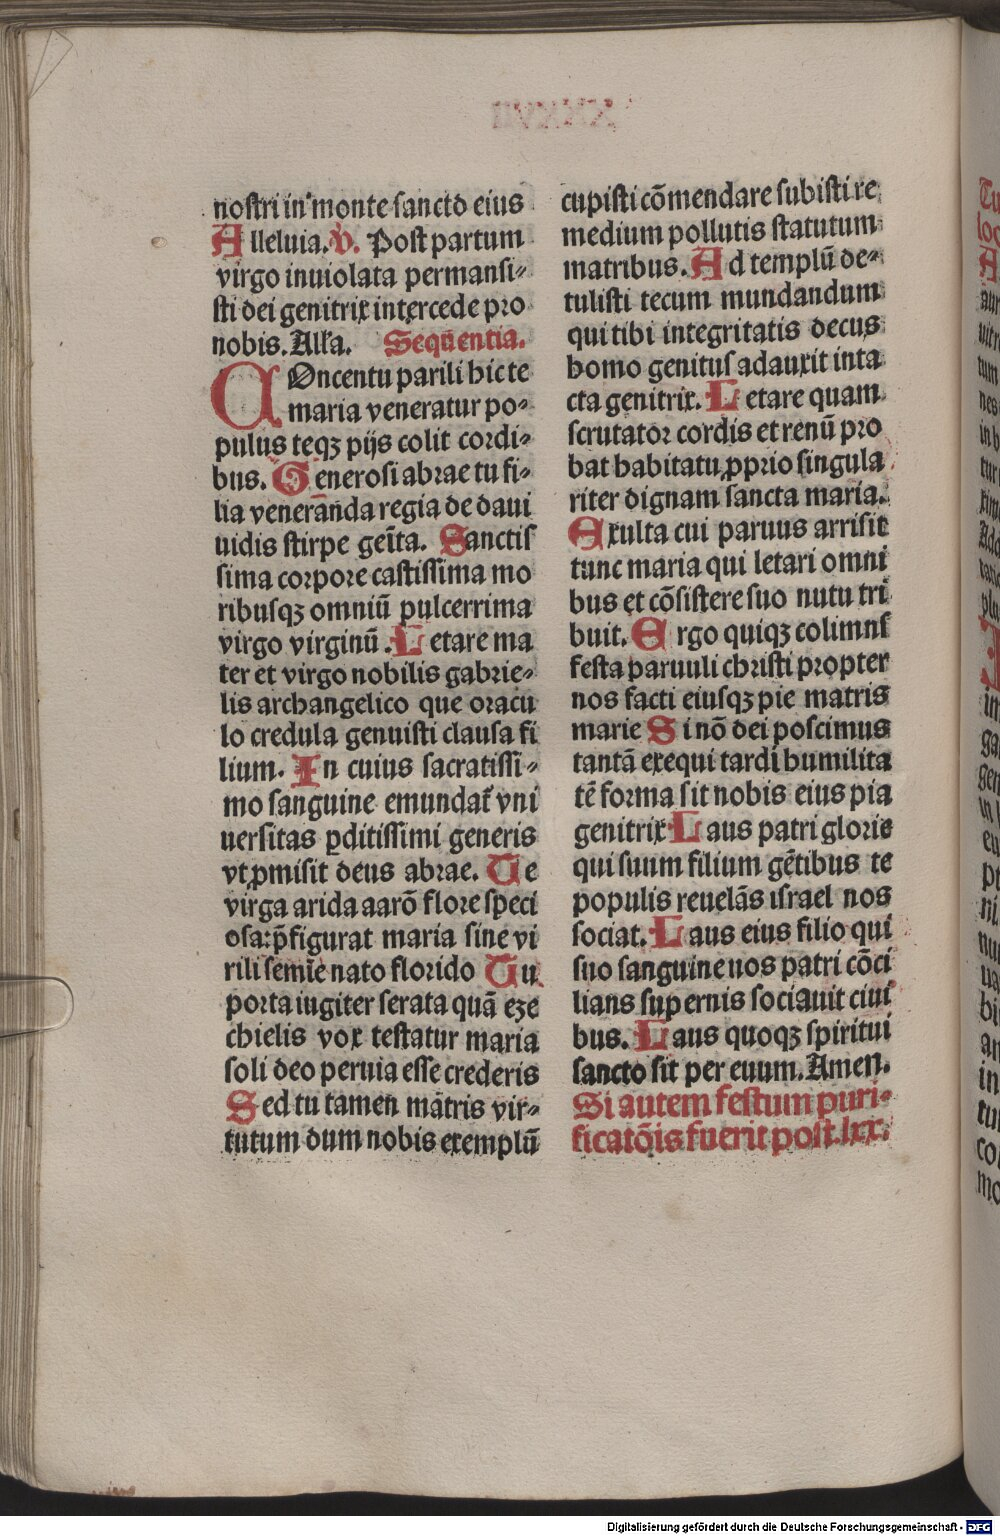 nostri in monte sancto eius
Alleluia. V. Post partum
virgo inuiolata permansi-
sti dei genitrix intercede pro
nobis. Alľa. Sequentia.
COncentu parili hic te
maria veneratur po-
pulus teqꝫ pijs colit cordi-
bus. Generosi abrae tu fi-
lia veneranda regia de daui
uidis stirpe geīta. Sanctis
sima corpore castissima mo
ribusqꝫ omniū pulcerrima
virgo virginū. Letare ma
ter et virgo nobilis gabrie-
lis archangelico que oracu
lo credula genuisti clausa fi
lium. In cuius sacratissi-
mo sanguine emundat᷑ vni
uersitas ꝑditissimi generis
vt ꝓmisit deus abrae. Te
virga arida aarō flore speci
osa: p̄figurat maria sine vi
rili semīe nato florido Tu
porta iugiter serata quā eze
chielis vox testatur maria
soli deo peruia esse crederis
Sed tu tamen mātris vir-
tutum dum nobis exemplū
cupisti cōmendare subisti re
medium pollutis statutum
matribus. Ad templū de-
tulisti tecum mundandum
qui tibi integritatis decus
homo genitus adauxit inta
cta genitrix. Letare quam
scrutator cordis et renū pro
bat habitatu ꝓprio singula
riter dignam sancta maria.
Exulta cui paruus arrisit
tunc maria qui letari omni
bus et cōsistere suo nutu tri
buit. Ergo quiqꝫ colimus
festa paruuli christi propter
nos facti eiusqꝫ pie matris
marie Si nō dei poscimus
tantā exequi tardi humilita
tē forma sit nobis eius pia
genitrix Laus patri glorie
qui suum filium gētibus te
populis reuelās israel nos
sociat. Laus eius filio qui
suo sanguine nos patri cōci
lians supernis sociauit ciui
bus. Laus quoqꝫ spiritui
sancto sit per euum. Amen.
Si autem festum puri-
ficatōis fuerit post lxx.
Digitalisierung gefördert durch die Deutsche Forschungsgemeinschaft - DFG